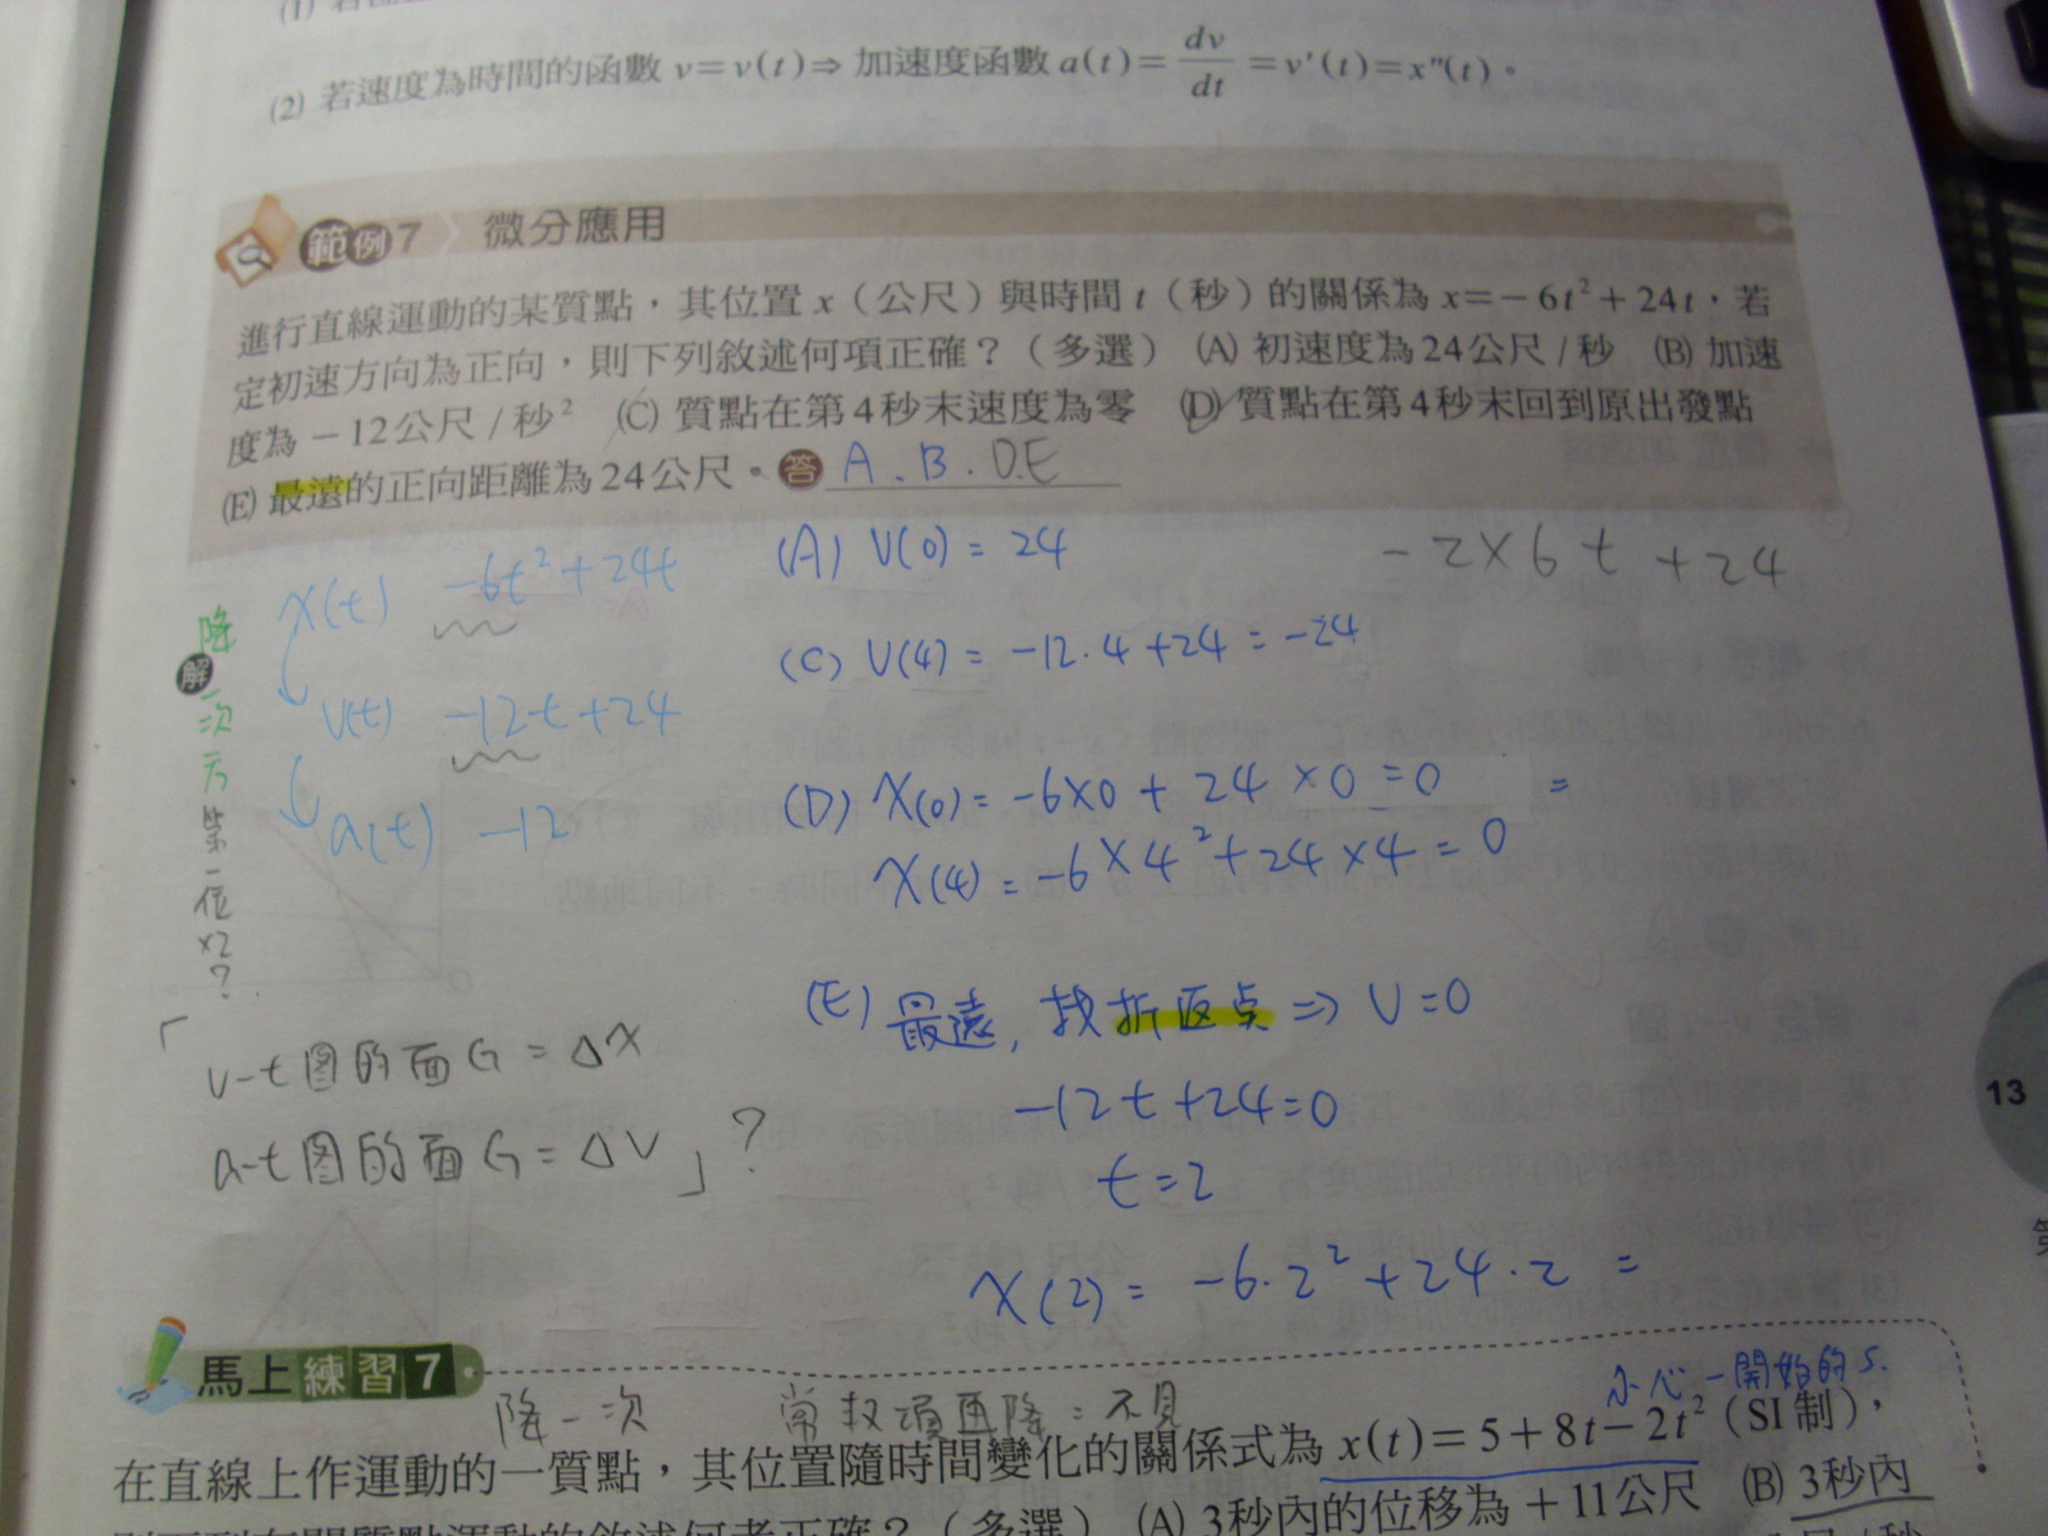 (2) 若速度為時間的函數 v=v(t)⇒ 加速度函數 a(t)= dv/dt =v'(t)=x"(t)。
範例7 微分應用
進行直線運動的某質點，其位置 x（公尺）與時間 t（秒）的關係為 x=-6t²+24t，若
定初速方向為正向，則下列敘述何項正確？（多選） (A) 初速度為24公尺/秒 (B) 加速
度為-12公尺/秒² (C) 質點在第4秒末速度為零 (D) 質點在第4秒末回到原出發點
(E) 最遠的正向距離為24公尺。答 A.B.D.E
x(t) -6t²+24t
v(t) -12t+24
a(t) -12
降一次方
解
第一位×2?
「v-t图的面G=Δx
a-t图的面G=ΔV」?
(A) V(0)=24
-2×6t+24
(C) V(4)=-12·4+24=-24
(D) X(0)=-6×0+24×0=0 =
X(4)=-6×4²+24×4=0
(E) 最遠, 找折返点⇒V=0
-12t+24=0
t=2
X(2)=-6·2²+24·2=
13
馬上練習7
小心一開始的5.
降一次 常數項再降:不見
在直線上作運動的一質點，其位置隨時間變化的關係式為 x(t)=5+8t-2t²（SI制），
則下列有關質點運動的敘述何者正確？（多選） (A) 3秒內的位移為+11公尺 (B) 3秒內